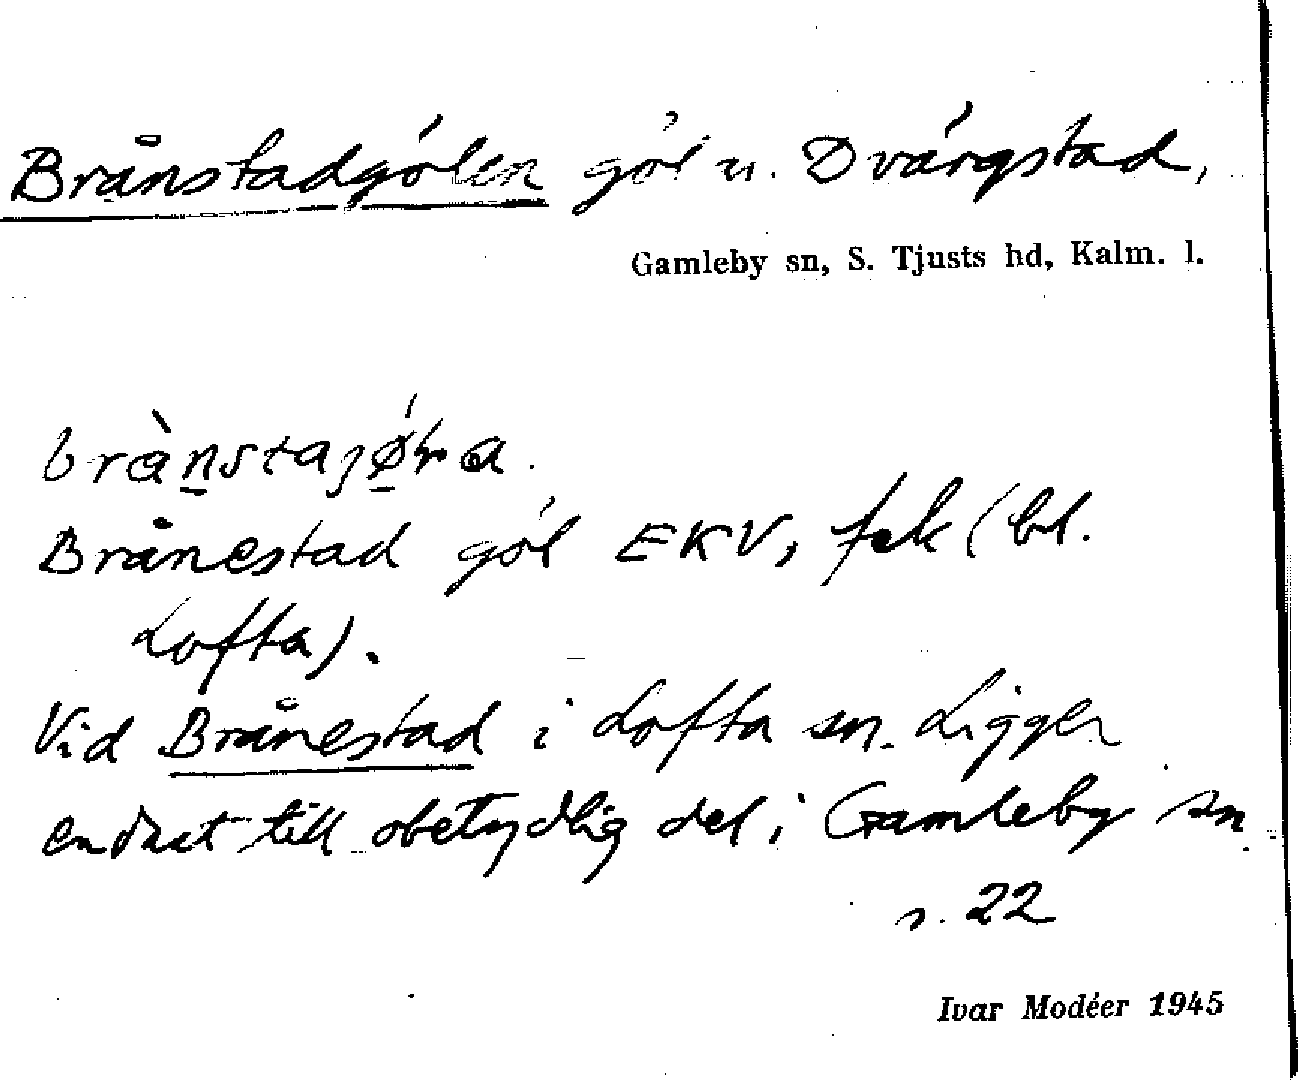 Brånstadgölen göl n. Dvärgstad,
Gamleby sn, S. Tjusts hd, Kalm. l.
Brånestad göl EKV, fek (bl.
Lofta).
Vid Brånestad i Lofta sn. Ligger
endast till obetydlig del i Gamleby sn
s. 22
Ivar Modéer 1945